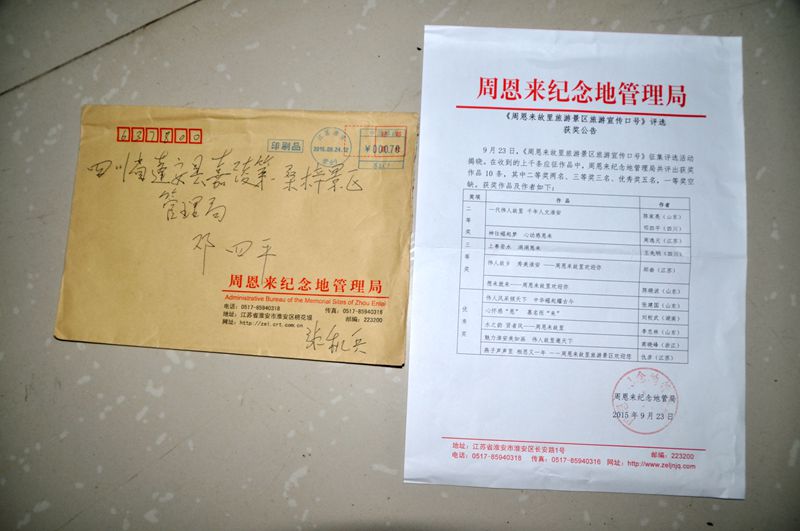 637800
印刷品
2015.09.24.12
¥00070
四川省蓬安县嘉陵第一桑梓景区
管理局
邓四平
周恩来纪念地管理局
Administrative Bureau of the Memorial Sites of Zhou Enlai
电话：0517-85940318 传真：0517-85940316
地址：江苏省淮安市淮安区桃花垠 邮编：223200
网址：http://zel.crt.com.cn
周恩来纪念地管理局
《周恩来故里旅游景区旅游宣传口号》评选
获奖公告
9月23日，《周恩来故里景区旅游宣传口号》征集评选活动
揭晓，在收到的上千条应征作品中，周恩来纪念地管理局共评出获奖
作品10条，其中二等奖两名、三等奖三名、优秀奖五名，一等奖空
缺。获奖作品及作者如下：
奖项 作品 作者
二等奖 一代伟人故里 千年人文淮安 陈家亮（山东）
邓四平（四川）
神往崛起梦 心动感恩来 周逸天（江苏）
三等奖 上善若水 润润恩来 王先明（四川）
伟人故乡 秀美淮安——周恩来故里欢迎你 邱俞（江苏）
想来就来——周恩来故里欢迎您 陈晓波（山东）
优秀奖 伟人风采倾天下 中华崛起耀古今 张建国（山东）
心怀感“恩” 慕名而“来” 刘桓武（湖南）
水之韵 贤者风——周恩来故里 李志林（山东）
魅力淮安美如画 伟人故里通天下 高晓峰（浙江）
燕子声声里 相思又一年——周恩来故里旅游景区欢迎您 仇彦（江苏）
周恩来纪念地管局
2015年9月23日
地址：江苏省淮安市淮安区长安路1号 邮编：223200
电话：0517-85940318 传真：0517-85940316 网址：http://www.zeljnjq.com